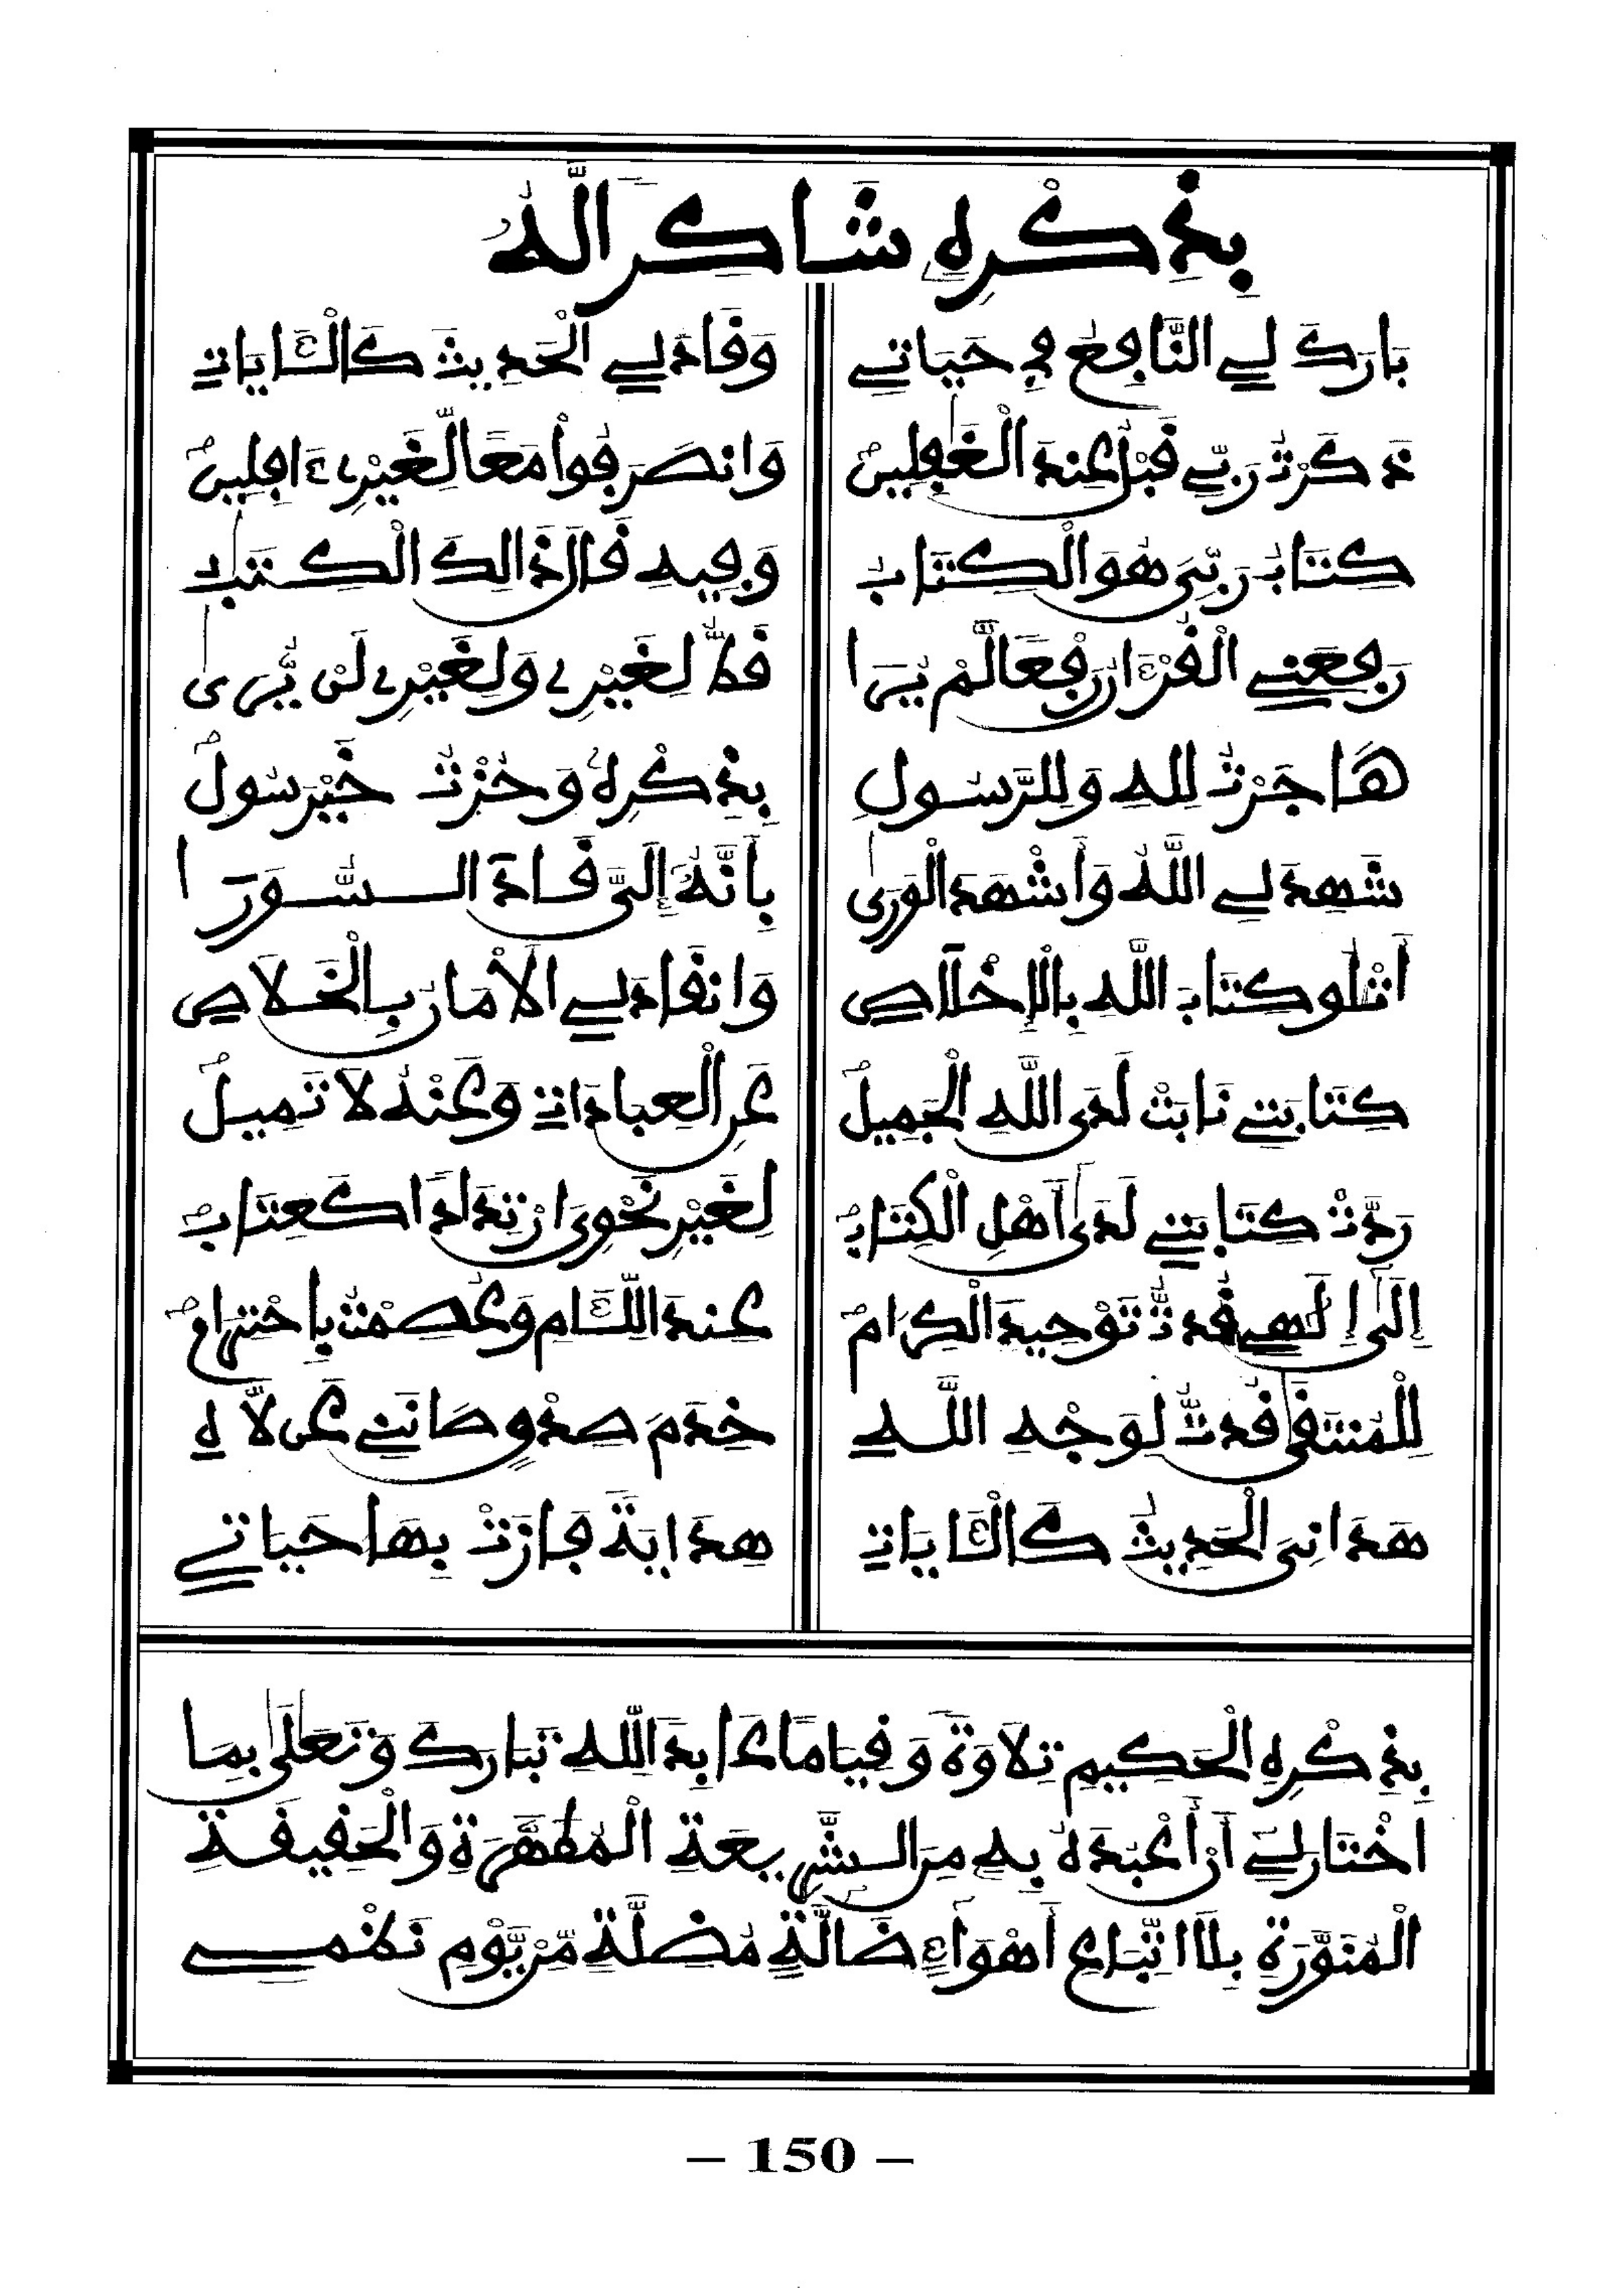 بِذِكْرِهِ شَاكِرًا لَّهُ
بَارَكَ لِي النَّافِعُ فِي حَيَاتِي وَقَادَ لِي الْحَدِيثَ كَالْآيَاتِ
ذَكَرْتُ رَبِّي قَبْلُ عِنْدَ الْغَافِلِينْ وَانْصَرَفُوا مَعًا لِّغَيْرِي ءَافِلِينْ
كِتَابُ رَبِّيَ هُوَ الْكِتَابُ وَفِيهِ قَالَ ذَالِكَ الْكِتَابُ
رَفَعَنِي الْقُرْءَانُ رَفْعًا لَّمْ يُرَا قَطُّ لِغَيْرِي وَلِغَيْرِي لَنْ يُّرَى
هَاجَرْتُ لِلهِ وَلِلرَّسُولِ بِذِكْرِهِ وَحُزْتُ خَيْرَ سُولْ
شَهِدَ لِي اللَّهُ وَأَشْهَدَ الْوَرَى بِأَنَّهُ إِلَيَّ قَادَ السُّوَرَا
أَتْلُو كِتَابَ اللَّهِ بِالْإِخْلَاصِ وَانْقَادَ لِي الْأَمَانُ بِالْخَلَاصِ
كِتَابَتِي نَابَتْ لَدَى اللَّهِ الْجَمِيلْ عَنِ الْعِبَادَاتِ وَعَنْهُ لَا تَمِيلْ
رَدَّتْ كِتَابَتِي لَدَى أَهْلِ الْكِتَابْ لِغَيْرِ نَحْوِيَ ارْتِدَادًا كَعِتَابْ
إِلَى إِلَهِي قُدتُّ تَوْحِيدَ الْكِرَامْ عِنْدَ اللِّئَامِ وَعُصِمْتُ بِاحْتِرَامْ
لِلْمُنْتَقَى قُدتُّ لِوَجْهِ اللَّهِ خِدَمَ صِدْقٍ صَانَنِي عَنْ لَّاهِ
هَدَانِيَ الْحَدِيثُ كَالْآيَاتِ هِدَايَةً فَازَتْ بِهَا حَيَاتِي
بِذِكْرِهِ الْحَكِيمِ تِلَاوَةً وَقِيَامًا عَابِدَ اللَّهِ تَبَارَكَ وَتَعَالَى بِمَا
اخْتَارَ لِي أَنْ أَعْبُدَهُ بِهِ مِنَ الشَّرِيعَةِ الْمُطَهَّرَةِ وَالْحَقِيقَةِ
الْمُنَوَّرَةِ بِلَا اتِّبَاعِ أَهْوَاءٍ ضَالَّةٍ مُضِلَّةٍ مِّنْ يَّوْمِ
– 150 –